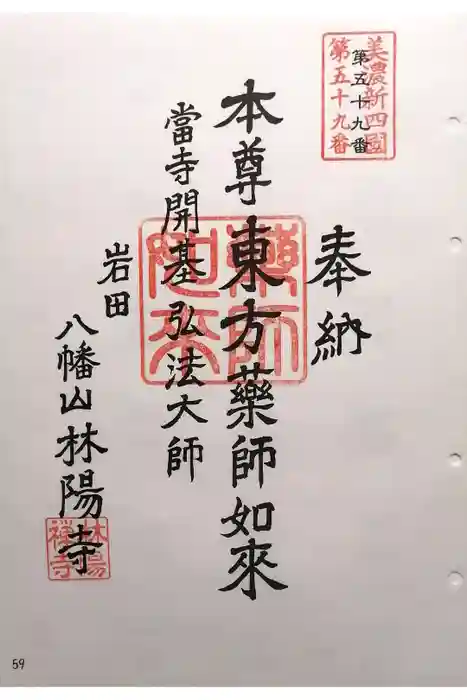 美濃新四國
第五十九番
第五十九番
奉納
本尊 東方藥師如來
藥師如來
當寺開基弘法大師
岩田
八幡山林陽寺
林陽禅寺
59